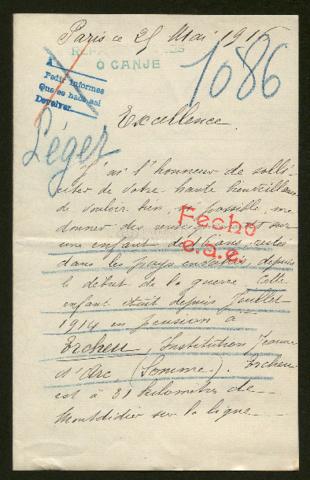 Paris ce 25 Mai 1916
O CANJE
A
Pedir informes
Que es nada así
Devolver.
1086
Excellence
Léger
J'ai l'honneur de solli-
citer de Votre haute bienveillance
de vouloir bien, si possible, me
donner des renseignements sur
une enfant de ans, restée
dans les pays envahis depuis
le début de la guerre. Cette
Fecho
e.s.e.
enfant était depuis Juillet
1914 en pension à
Ercheu, Institution Jeanne
d'Arc (Somme). Ercheu
est à 31 kilomètres de
Montdidier sur la ligne